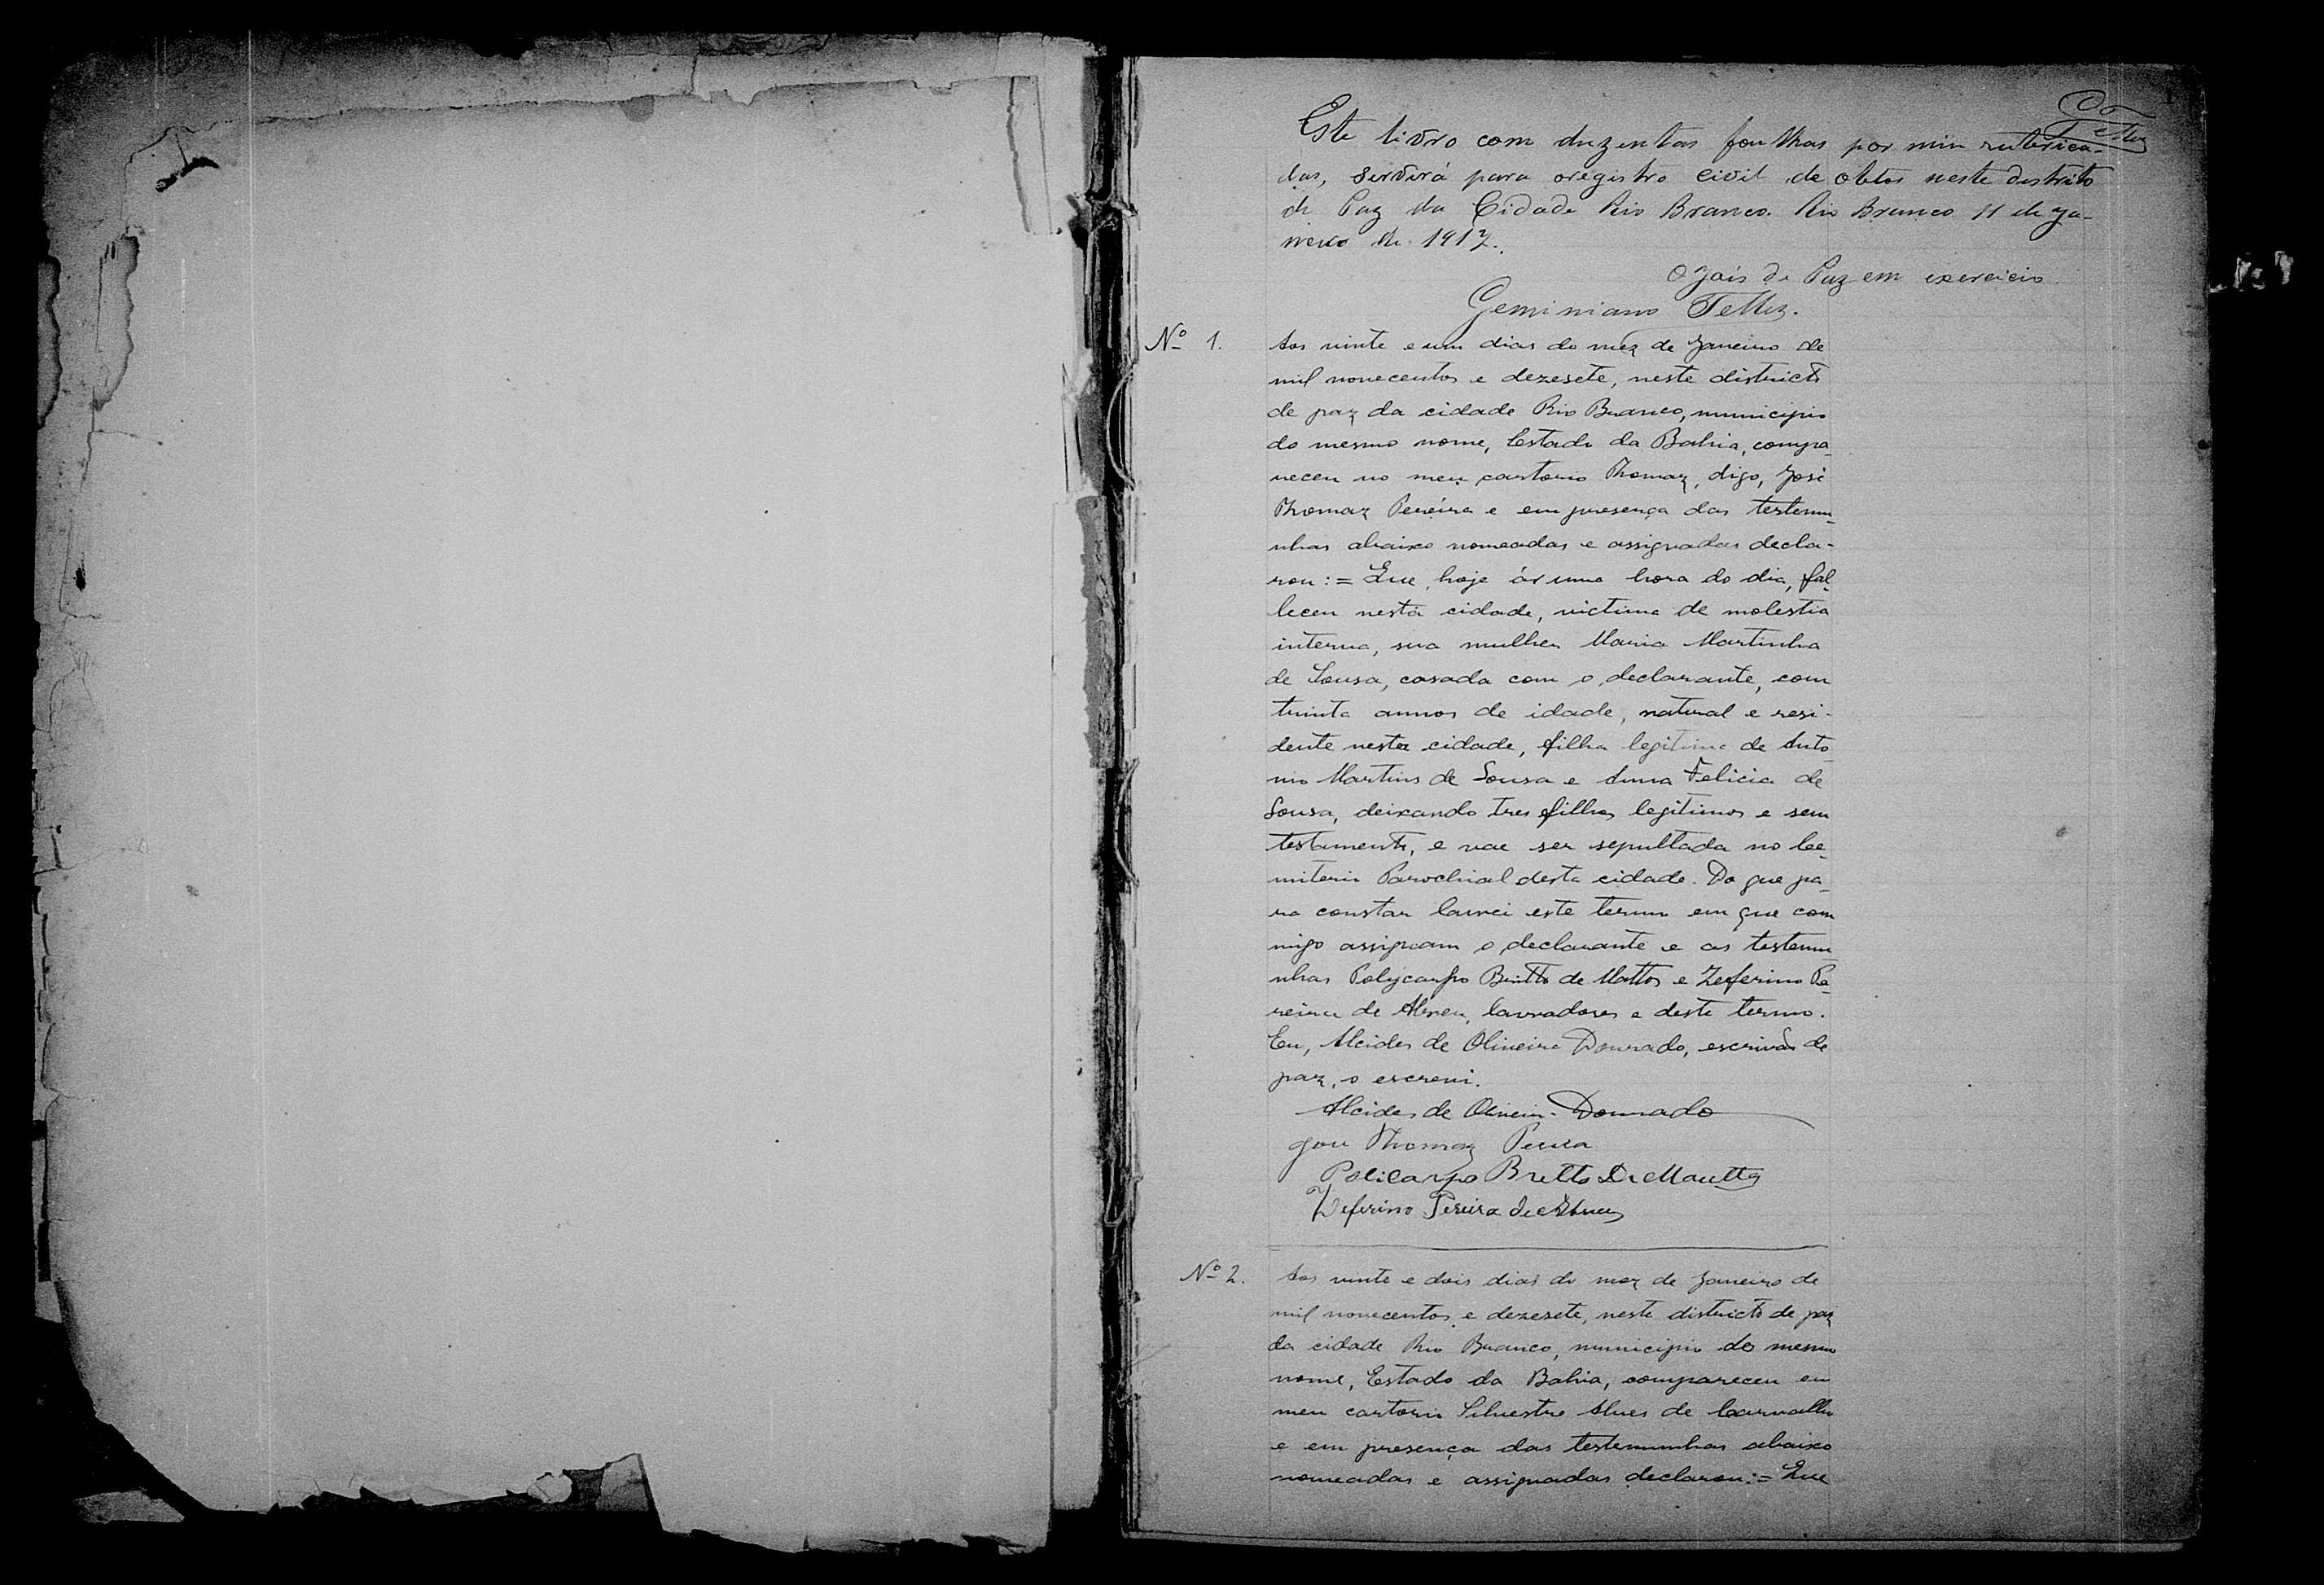 1
G Telles
Este livro com duzentas foulhas por min rubrica-
das, servirá para oregistro civil de obtos neste destrito
de Paz da Cidade Rio Branco. Rio Branco 11 de ja-
neiro de 1917.
O Jais de Paz em exercicio
Geminiano Telles.
Nº 1.
Aos vinte e um dias do mez de Janeiro de
mil novecentos e dezesete, neste districto
de paz da cidade Rio Branco, municipio
do mesmo nome, Estado da Bahia, compa-
receu no meu cartorio Thomaz, digo, José
Thomaz Pereira e em presença das testemu-
nhas abaixo nomeadas e assignadas decla-
rou:= Que, hoje ás uma hora do dia, fal-
leceu nesta cidade, victima de molestia
interna, sua mulher Maria Martinha
de Sousa, casada com o declarante, com
trinta annos de idade, natural e resi-
dente nesta cidade, filha legitima de Anto-
nio Martins de Sousa e Anna Felicia de
Sousa, deixando tres filhos legitimos e sem
testamento, e vae ser sepultada no Ce-
miterio Parochial desta cidade. Do que pa-
ra constar lavrei este termo em que com
migo assignam o declarante e as testemu
nhas Polycarpo Britto de Mattos e Zeferino Pe-
reira de Abreu, lavradores e deste termo.
Eu, Alcides de Oliveira Dourado, escrivão de
paz, o escrevi.
Alcides de Oliveira Dourado
Jou Thomaz Pereira
Policarpo Bretto De Mautto
Zeferino Pereira de Abreu
Nº 2.
Aos vinte e dois dias do mez de Janeiro de
mil novecentos e dezesete, neste districto de paz
da cidade Rio Branco, municipio do mesmo
nome, Estado da Bahia, compareceu em
meu cartorio Silvestre Alves de Carvalho
e em presença das testemunhas abaixo
nomeadas e assignadas declarou:= Que